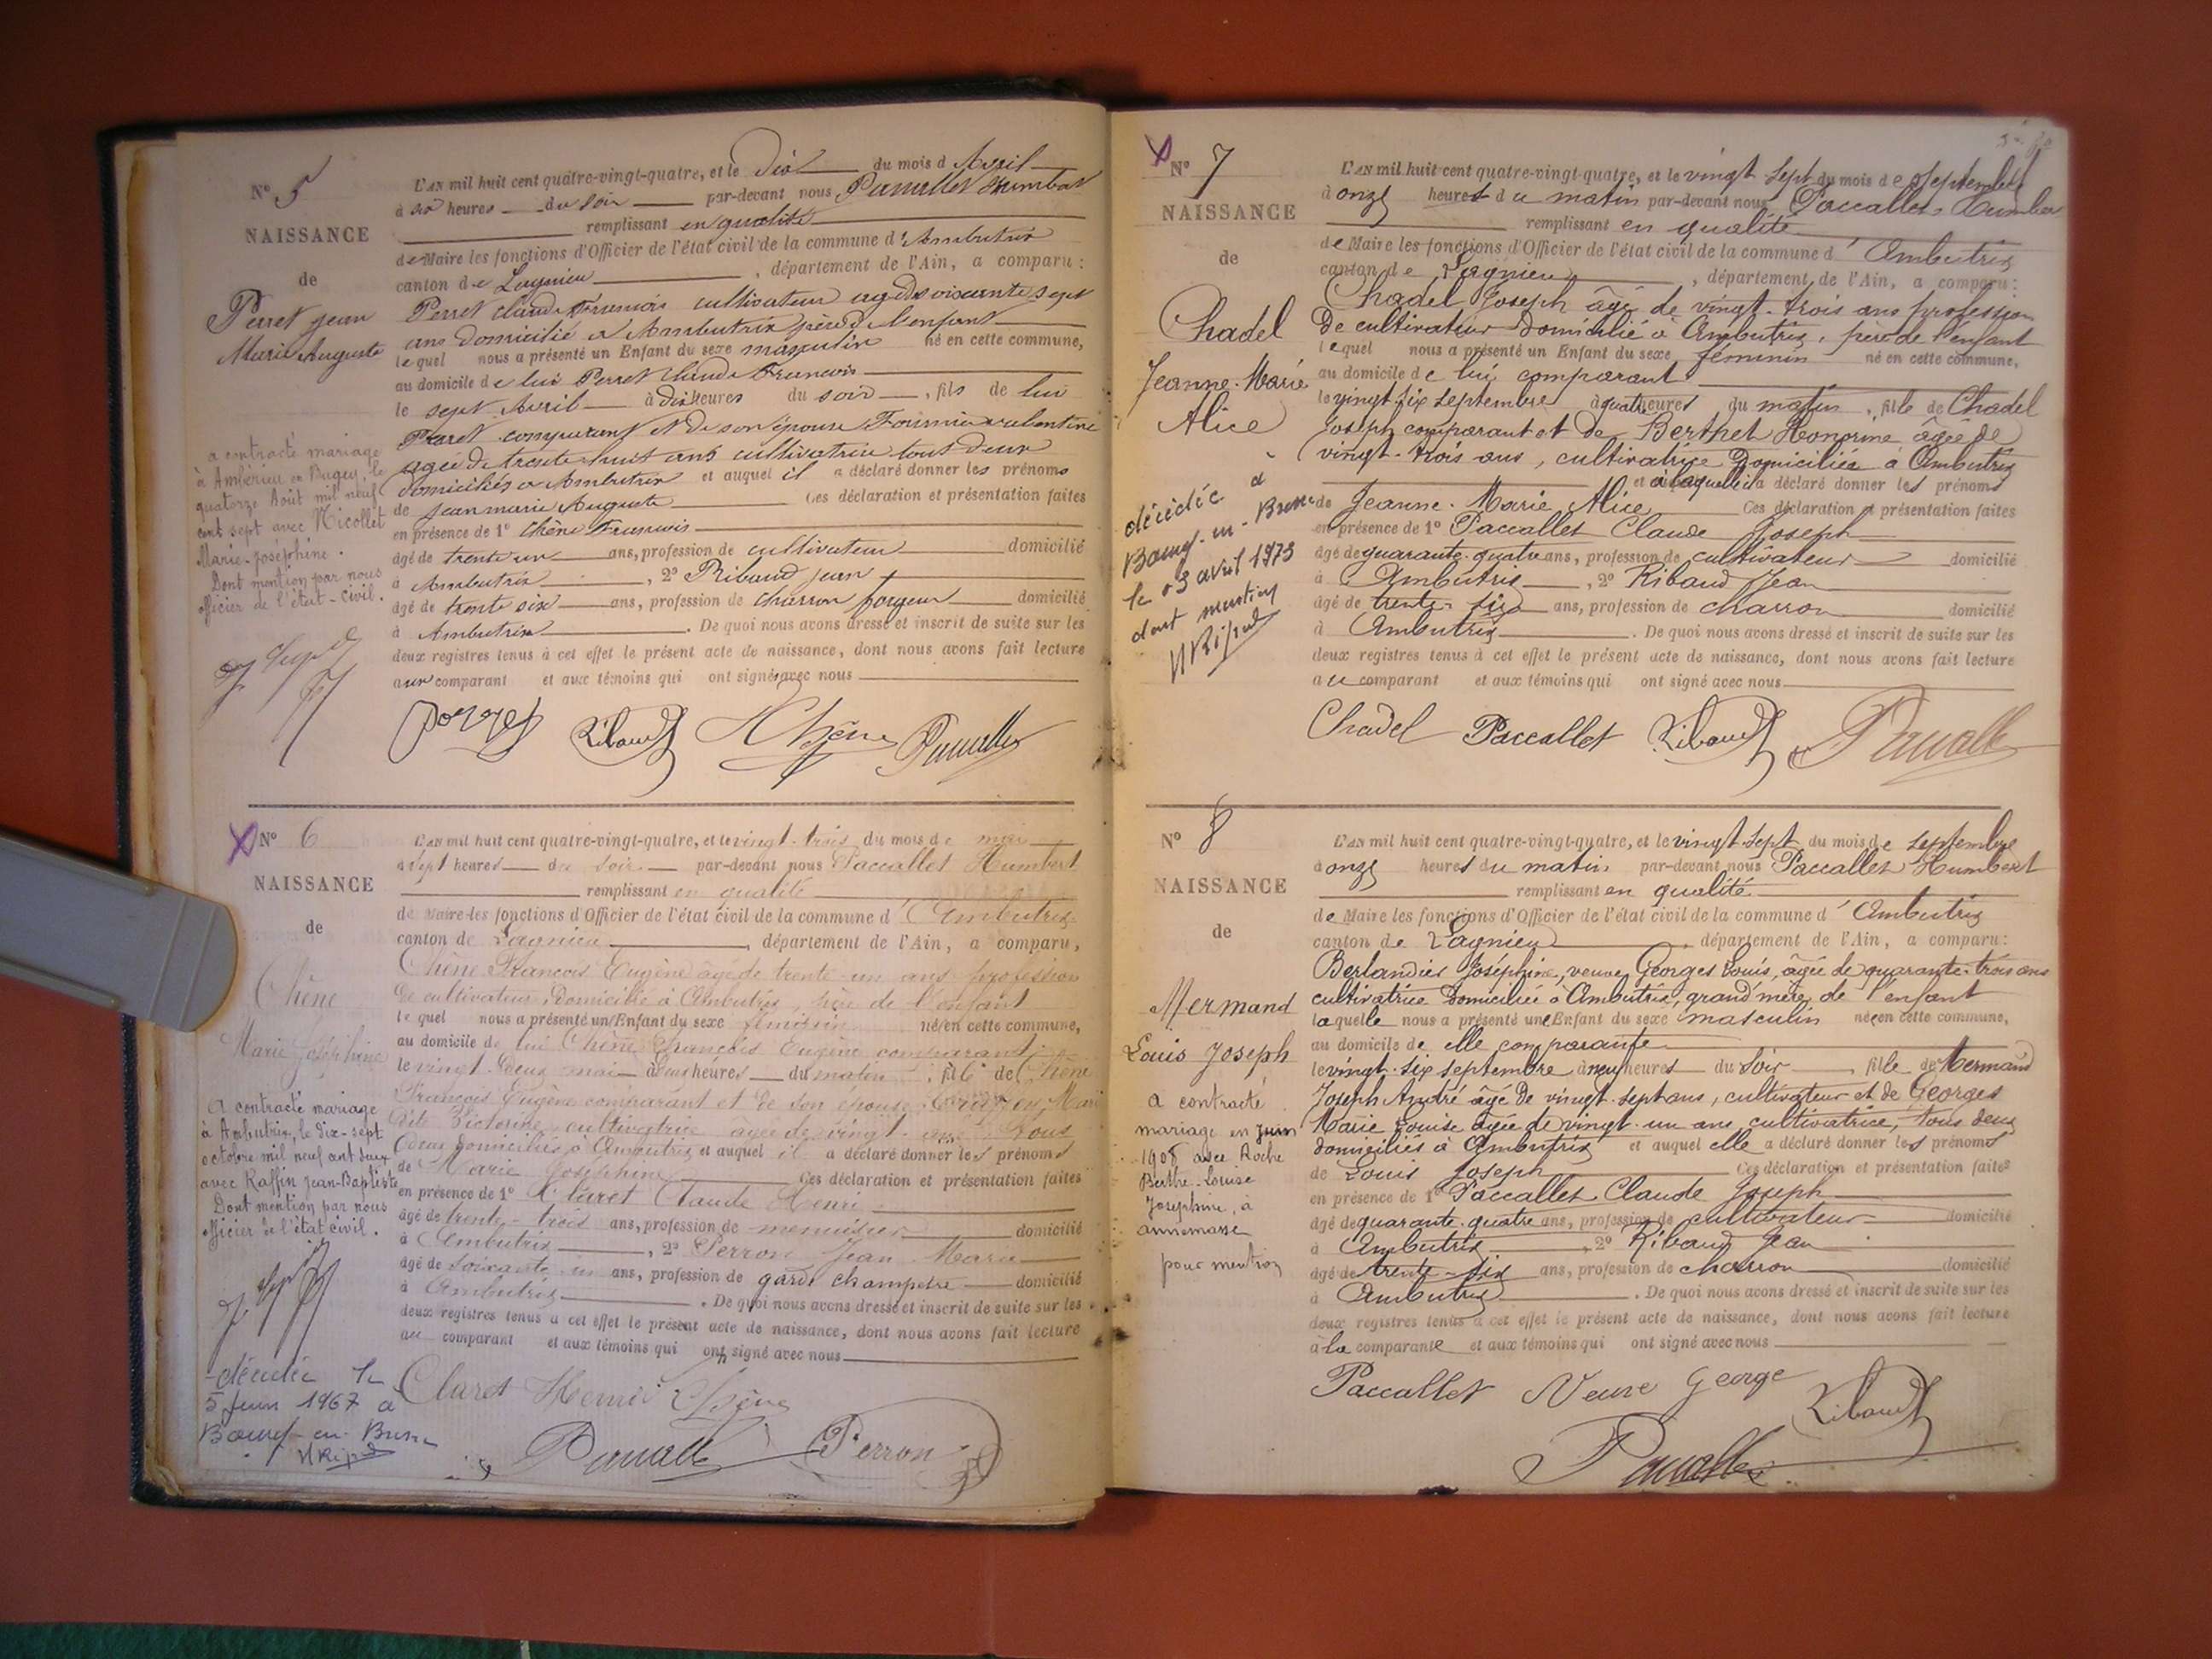 N° 5
NAISSANCE
de
Perret Jean
Marie Auguste
a contracté mariage
à Ambérieu en Bugey, le
quatorze Août mil neuf
cent sept avec Nicollet
Marie-Joséphine.
Dont mention par nous
officier de l'état-civil.
L'AN mil huit cent quatre-vingt-quatre, et le Dix du mois d Avril
à six heures du soir par-devant nous Paccallet Humbert
remplissant en qualité
de Maire les fonctions d'Officier de l'état civil de la commune d'Ambutrix
canton de Lagnieu, département de l'Ain, a comparu:
Perret claude François cultivateur agé de soixante sept
ans domicilié a Ambutrix père de l'enfant
lequel nous a présenté un Enfant du sexe masculin né en cette commune,
au domicile de lui Perret claude François
le sept Avril à dix heures du soir, fils de lui
Perret comparant et de son épouse Fournier
agée de trente huit ans cultivatrice tout deux
domiciliés a Ambutrix et auquel il a déclaré donner les prénoms
de jean marie Auguste Ces déclaration et présentation faites
en présence de 1° Chêne François
âgé de trente un ans, profession de cultivateur domicilié
à Ambutrix, 2° Ribaud jean
âgé de trente six ans, profession de charron forgeur domicilié
à Ambutrix. De quoi nous avons dressé et inscrit de suite sur les
deux registres tenus à cet effet le présent acte de naissance, dont nous avons fait lecture
aux comparant et aux témoins qui ont signé avec nous
Ribaud Chêne Paccallet
N° 6
NAISSANCE
de
Chêne
Marie Joséphine
A contracté mariage
à Ambutrix, le dix-sept
octobre mil neuf cent deux
avec Raffin Jean-Baptiste
Dont mention par nous
officier de l'état civil.
décédée le
5 juin 1967 à
Bourg-en-Bresse
L'AN mil huit cent quatre-vingt-quatre, et le vingt-trois du mois de mai
à sept heures du soir par-devant nous Paccallet Humbert
remplissant en qualité
de Maire les fonctions d'Officier de l'état civil de la commune d'Ambutrix
canton de Lagnieu, département de l'Ain, a comparu,
Chêne François Eugène âgé de trente-un ans profession
de cultivateur, Domicilié à Ambutrix, père de l'enfant
lequel nous a présenté un Enfant du sexe féminin né en cette commune,
au domicile de lui Chêne François Eugène comparant
le vingt-deux mai à heures du matin, fille de Chêne
François Eugène comparant et de son épouse Marie
dite Victorine cultivatrice agée de vingt ans Tous
deux domiciliés à Ambutrix et auquel il a déclaré donner les prénoms
de Marie Joséphine Ces déclaration et présentation faites
en présence de 1° Claret Claude Henri
âgé de trente-trois ans, profession de menuisier domicilié
à Ambutrix, 2° Perron Jean Marie
âgé de soixante un ans, profession de garde champêtre domicilié
à Ambutrix. De quoi nous avons dressé et inscrit de suite sur les
deux registres tenus à cet effet le présent acte de naissance, dont nous avons fait lecture
au comparant et aux témoins qui ont signé avec nous
Claret Henri Chêne
Paccallet Perron
N° 7
NAISSANCE
de
Chadel
Jeanne-Marie
Alice
décédée à
Bourg-en-Bresse
le 03 avril 1973
dont mention
L'AN mil huit cent quatre-vingt-quatre, et le vingt-sept du mois de septembre
à onze heures du matin par-devant nous Paccallet Humber
remplissant en qualité
de Maire les fonctions d'Officier de l'état civil de la commune d'Ambutrix
canton de Lagnieu, département de l'Ain, a comparu:
Chadel Joseph âgé de vingt-trois ans profession
De cultivateur Domicilié à Ambutrix, père de l'enfant
lequel nous a présenté un Enfant du sexe féminin né en cette commune,
au domicile de lui comparant
le vingt-six septembre à quatre heures du matin, fille de Chadel
Joseph comparant et de Berthet Honorine âgée de
vingt-trois ans, cultivatrice Domiciliée à Ambutrix
et à laquelle il a déclaré donner les prénoms
de Jeanne-Marie Alice Ces déclaration et présentation faites
en présence de 1° Paccallet Claude Joseph
âgé de quarante-quatre ans, profession de cultivateur domicilié
à Ambutrix, 2° Ribaud Jean
âgé de trente-six ans, profession de charron domicilié
à Ambutrix. De quoi nous avons dressé et inscrit de suite sur les
deux registres tenus à cet effet le présent acte de naissance, dont nous avons fait lecture
au comparant et aux témoins qui ont signé avec nous
Chadel Paccallet Ribaud Paccallet
N° 8
NAISSANCE
de
Mermand
Louis Joseph
a contracté
mariage en juin
1908 avec Roche
Berthe-Louise
Joséphine, à
annemasse
pour mention
L'AN mil huit cent quatre-vingt-quatre, et le vingt-sept du mois de septembre
à onze heures du matin par-devant nous Paccallet Humbert
remplissant en qualité
de Maire les fonctions d'Officier de l'état civil de la commune d'Ambutrix
canton de Lagnieu département de l'Ain, a comparu:
Berlandier Joséphine, veuve Georges Louis, âgée de quarante-trois ans
cultivatrice Domiciliée à Ambutrix, grand'mère de l'enfant
laquelle nous a présenté une Enfant du sexe masculin né en cette commune,
au domicile de elle comparante
le vingt-six septembre à neuf heures du soir, fille de Mermand
Joseph André âgé de vingt-sept ans, cultivateur et de Georges
Marie Louise âgée de vingt-un ans, cultivatrice, tous deux
domiciliés à Ambutrix et auquel elle a déclaré donner les prénoms
de Louis Joseph Ces déclaration et présentation faites
en présence de 1° Paccallet Claude Joseph
âgé de quarante-quatre ans, profession de cultivateur domicilié
à Ambutrix, 2° Ribaud Jean
âgé de trente-six ans, profession de charron domicilié
à Ambutrix. De quoi nous avons dressé et inscrit de suite sur les
deux registres tenus à cet effet le présent acte de naissance, dont nous avons fait lecture
à la comparante et aux témoins qui ont signé avec nous
Paccallet Veuve George Ribaud
Paccallet